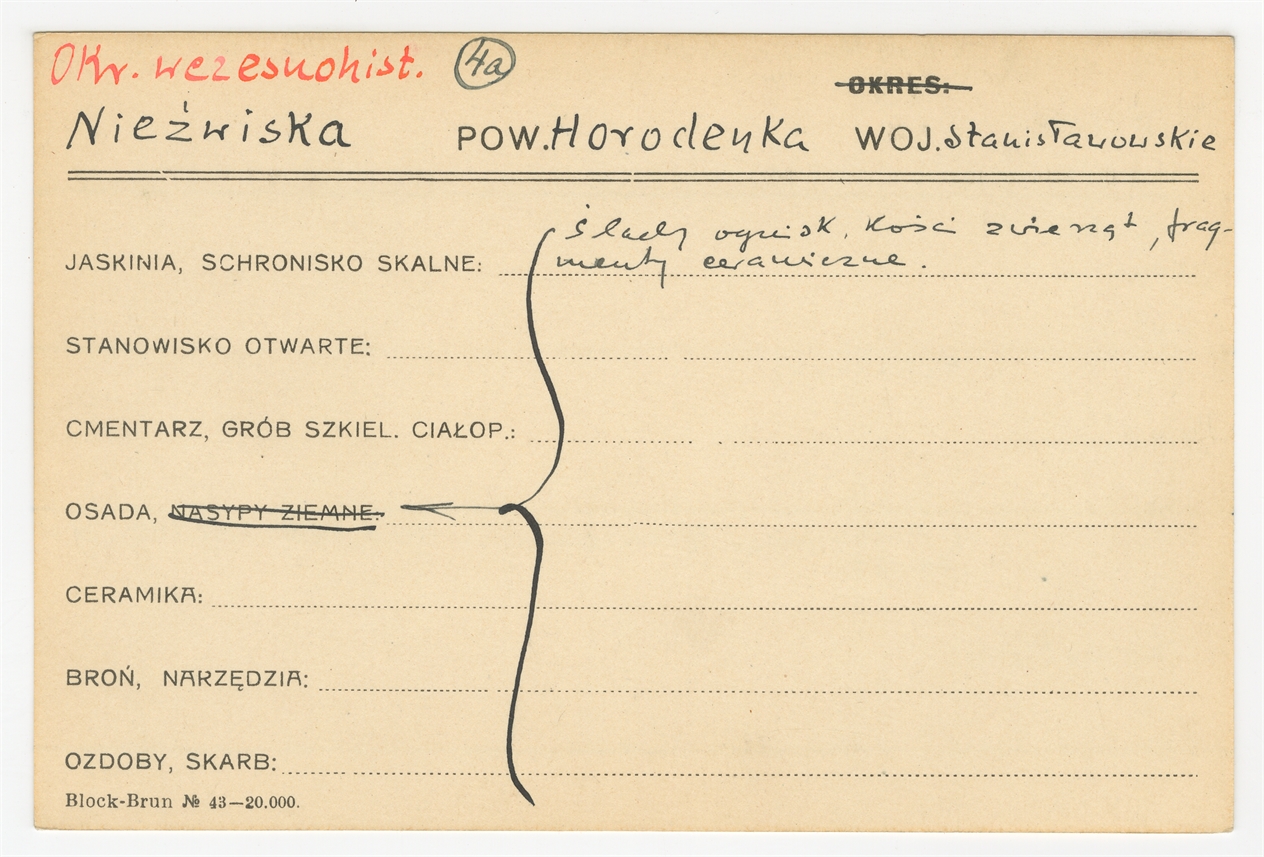 Okr. wczesnohist. 4a
OKRES:
Nieźwiska POW. Horodenka WOJ. Stanisławowskie
Ślady ognisk, kości zwierząt, frag-
JASKINIA, SCHRONISKO SKALNE: menty ceramiczne.
STANOWISKO OTWARTE:
CMENTARZ, GRÓB SZKIEL. CIAŁOP.:
OSADA, NASYPY ZIEMNE:
CERAMIKA:
BROŃ, NARZĘDZIA:
OZDOBY, SKARB:
Block-Brun № 43—20.000.